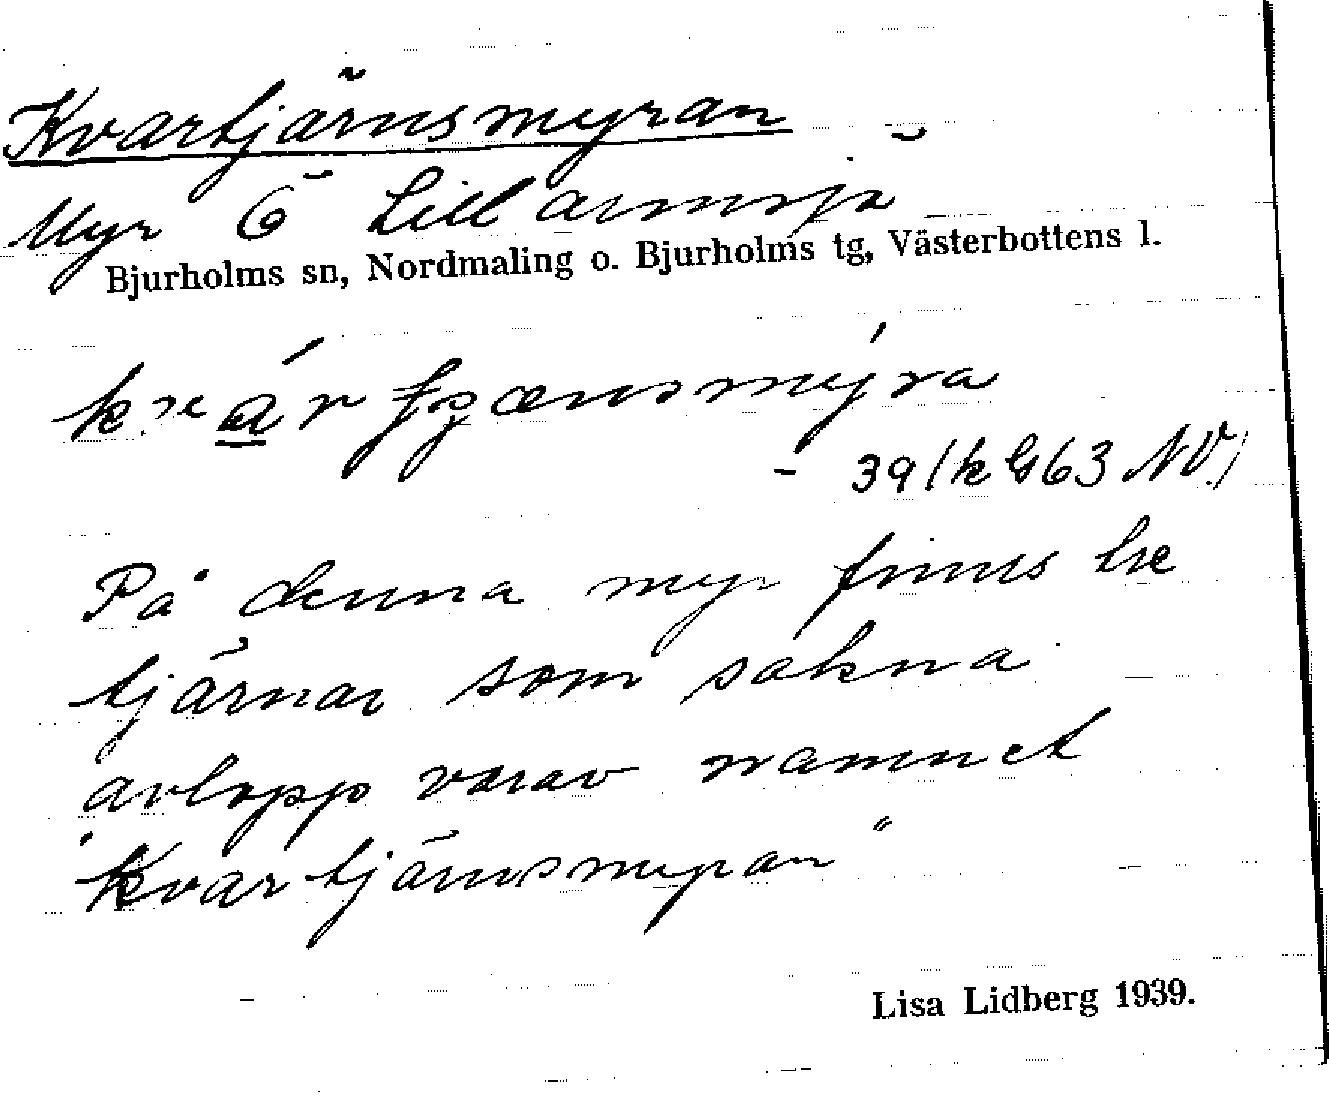 Kvartjärnsmyran
Myr Ö Lillarmsjö
Bjurholms sn, Nordmaling o. Bjurholms tg, Västerbottens l.
- 39 (k G63 NV)
På denna myr finns tre
tjärnar som sakna
avlopp varav namnet
"Kvartjärnsmyran"
Lisa Lidberg 1939.